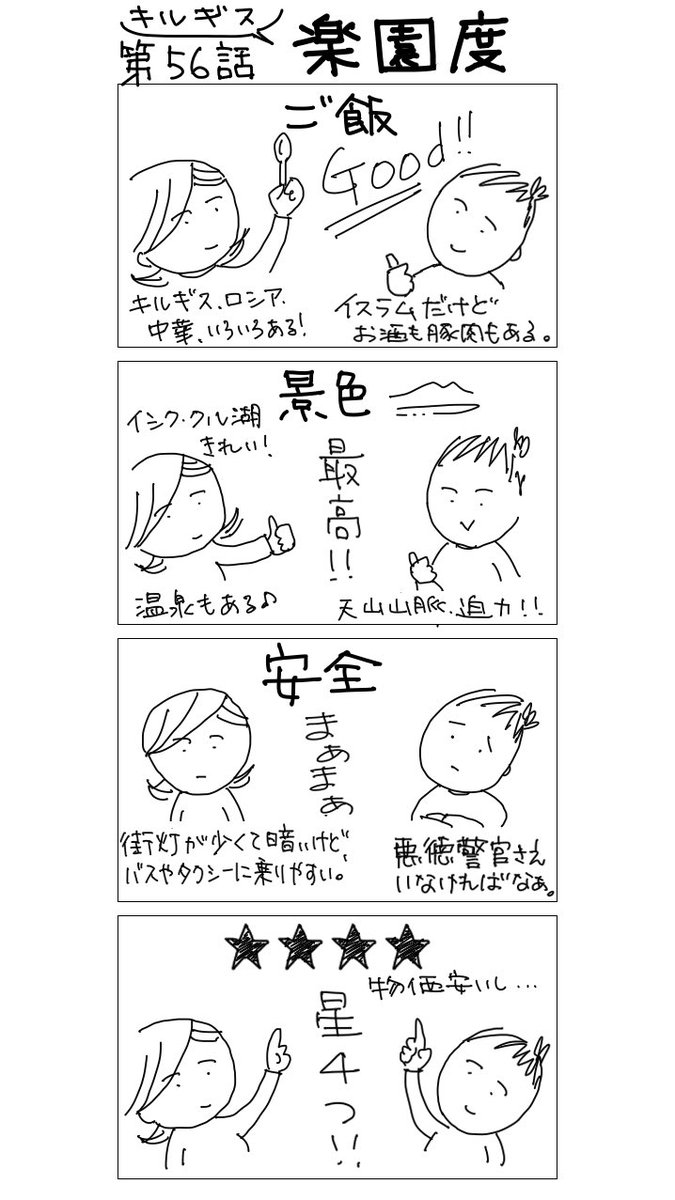 キルギス
第56話
楽園度
ご飯
Good!!
キルギス、ロシア、
中華、いろいろある!
イスラムだけど
お酒も豚肉もある。
景色
イシク・クル湖
きれい!
最高!!
温泉もある♪
天山山脈、迫力!!
安全
まぁまぁ
街灯が少くて暗いけど、
バスやタクシーに乗りやすい。
悪徳警官さえ
いなければなぁ。
★★★★
物価安いし…
星4つ!!